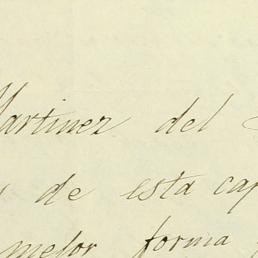 Martinez del
de esta cap
melor forma